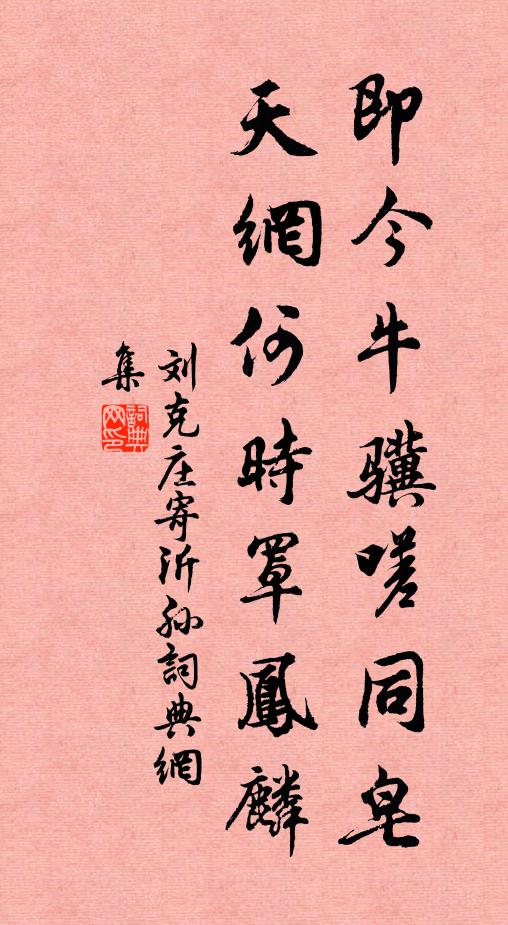 即今牛骥嗟同皂
天網何時罩鳳麟
刘克庄寄沂孙詞典網
集
詞典
网印